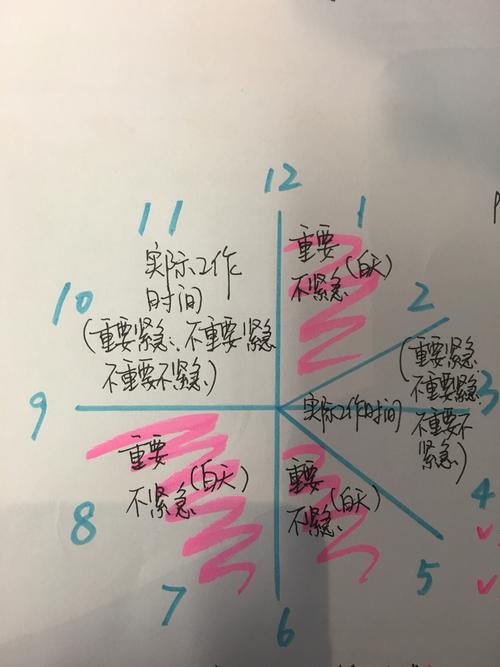 12
11
1
实际工作
时间
(重要紧急、不重要紧急
不重要不紧急)
重要
不紧急(白天)
10
2
9
3
实际工作时间
(重要紧急
不重要紧急
不重要不
紧急)
重要
不紧急(白天)
重要
不紧急(白天)
8
4
7
5
6